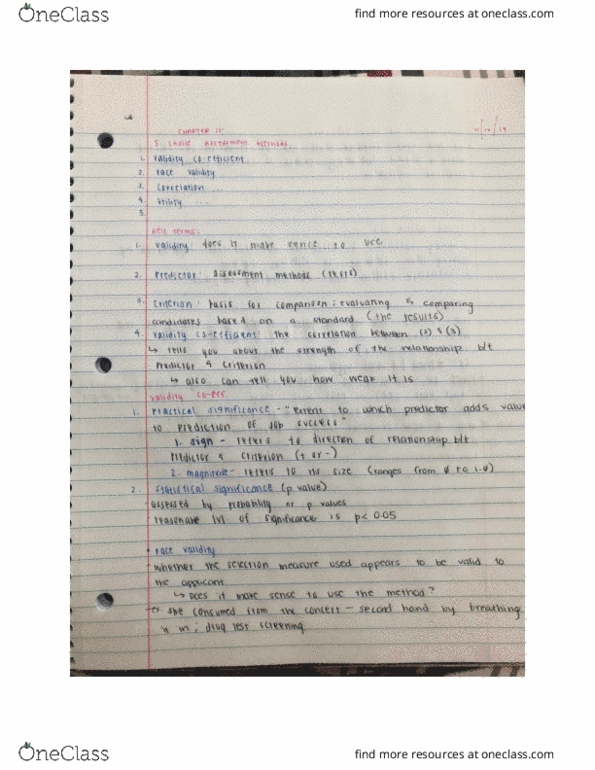 OneClass
find more resources at oneclass.com
CHAPTER 11
11/10/19
5 choose assessment methods
1. validity co-efficient
2. Face validity
3. correlation ...
4. utility ...
5.
Key terms:
1. validity does it make sence to use
2. Predictor: assessment methods (tests)
3. Criterion: basis for comparison; evaluating & comparing
candidates based on a standard (the results)
4 validity co-efficient: the correlation between (2) & (3)
↳ tells you about the strength of the relationship b/t
predictor & criterion
↳ also can tell you how weak it is
validity co-eff
1. Practical significance - "extent to which predictor adds value
to prediction of job success"
1. sign - refers to direction of relationship b/t
predictor & criterion (+ or -)
2. magnitude - refers to its size (ranges from 0 to 1.0)
2. Statistical significance (p value)
- assessed by probability or p values
reasonable lvl of significance is p< 0.05
• Face validity
- whether the selection measure used appears to be valid to
the applicant
↳ Does it make sense to use the method?
she consumed from the concert - second hand by breathing
it in; drug test screening
OneClass
find more resources at oneclass.com